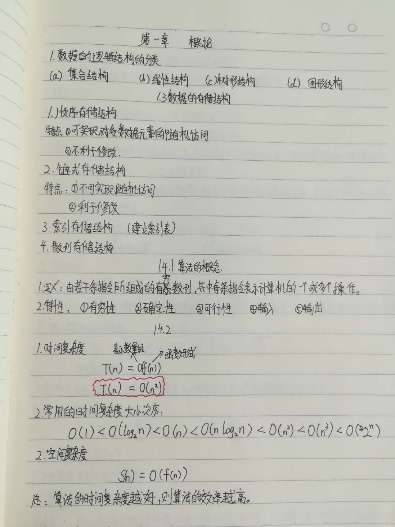 第一章 概论
1.数据的逻辑结构的分类
(a) 集合结构 (b) 线性结构 (c) 树形结构 (d) 图形结构
1.3 数据的存储结构
1.顺序存储结构
特点:①可实现对各数据元素的随机访问
②不利于修改.
2.链式存储结构
特点:①不可实现随机访问
②利于修改
3.索引存储结构 (建立索引表)
4.散列存储结构
1.4.1 算法的概念
1.定义:由若干条指令所组成的有穷序列,其中每条指令表示计算机的一个或多个操作。
2.特性:①有穷性 ②确定性 ③可行性 ④输入 ⑤输出
1.4.2
1.时间复杂度 函数形式
T(n) = O(f(n))
T(n) = O(n²)
2.常用的时间复杂度大小次序:
O(1) < O(log₂n) < O(n) < O(n log₂n) < O(n²) < O(n³) < O(2ⁿ)
2.空间复杂度
S(n) = O(f(n))
注:算法的时间复杂度越好,则算法的效率越高。